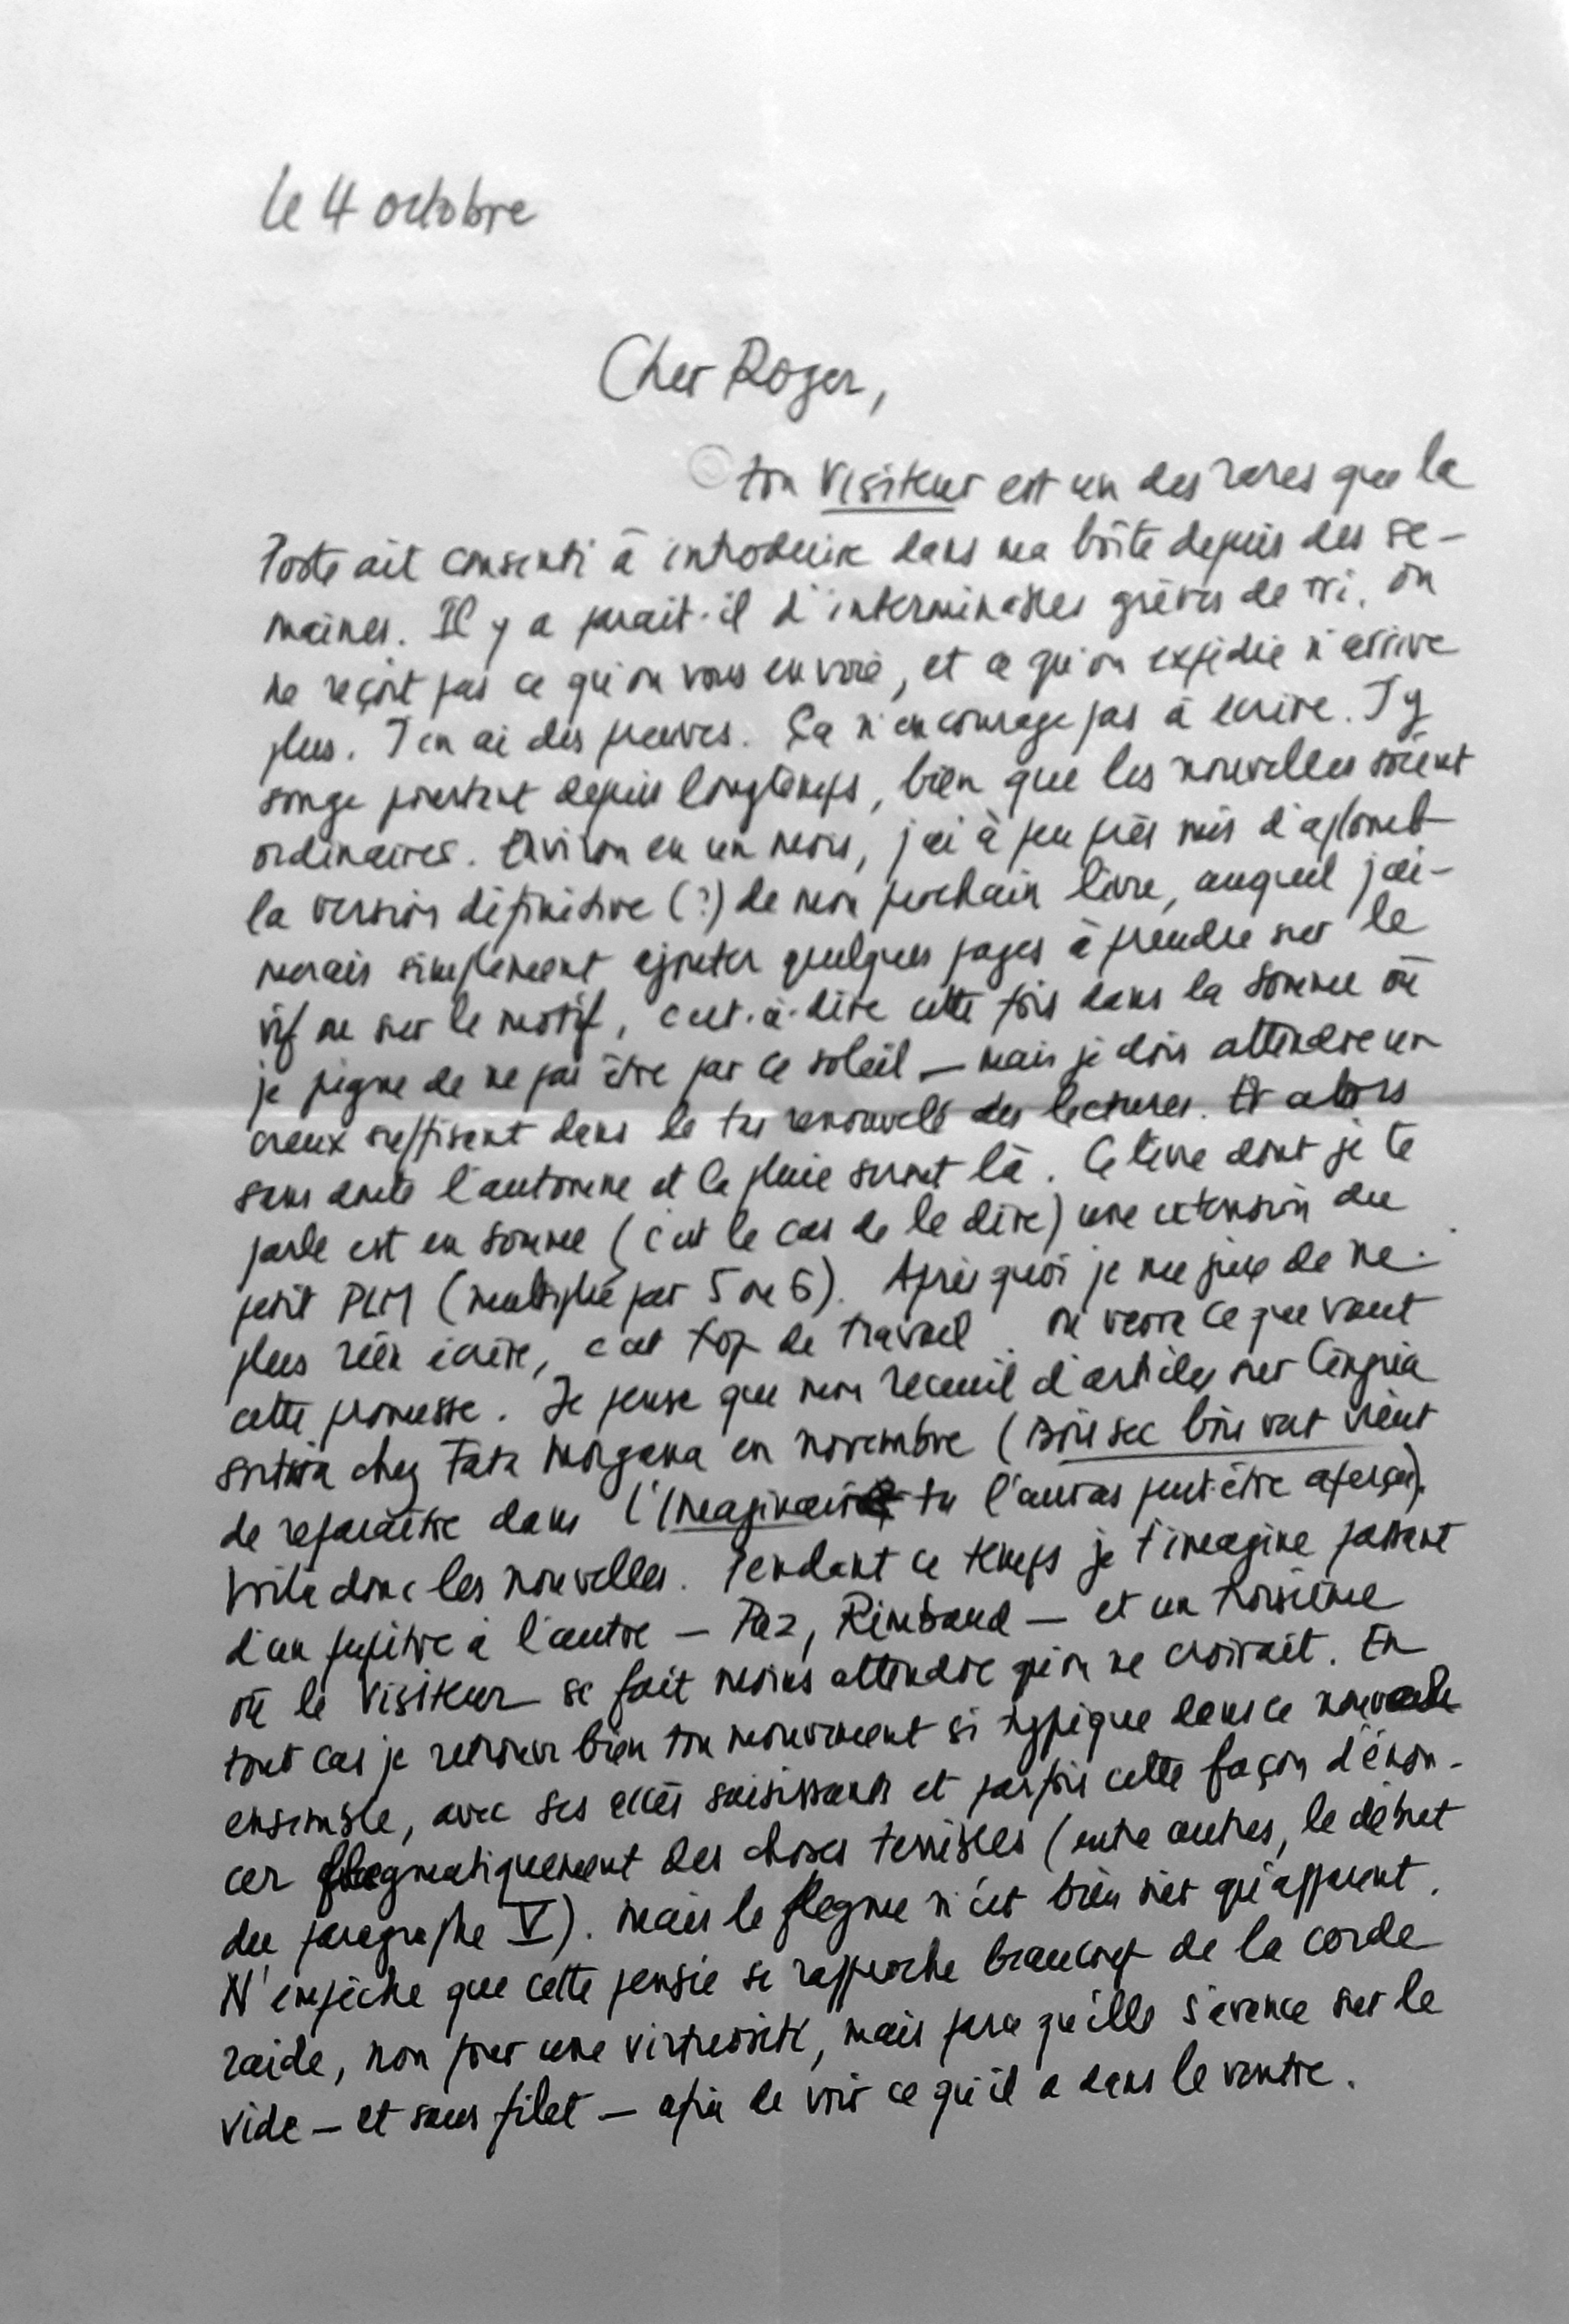 le 4 octobre
Cher Roger,
ton Visiteur est un des rares que la
Poste ait consenti à introduire dans ma boîte depuis des se-
maines. Il y a paraît-il d'interminables grèves de tri. on
ne reçoit pas ce qu'on vous envoie, et ce qu'on expédie n'arrive
plus. J'en ai des preuves. Ça n'encourage pas à écrire. J'y
songe pourtant depuis longtemps, bien que les nouvelles soient
ordinaires. Environ en un mois, j'ai à peu près mis d'aplomb
la version définitive (?) de mon prochain livre, auquel j'ai-
merais simplement ajouter quelques pages à prendre sur le
vif ou sur le motif, c'est-à-dire cette fois dans la Somme où
je pigne de ne pas être par ce soleil — mais je dois attendre un
creux suffisant dans le tas renouvelé des lectures. Et alors
sans doute l'automne et la pluie seront là. Ce livre dont je te
parle est en somme (c'est le cas de le dire) une extension du
petit PLM (multiplié par 5 ou 6). Après quoi je me jure de ne
plus rien écrire, c'est trop de travail. on verra ce que vaut
cette promesse. Je pense que mon recueil d'articles sur Cingria
sortira chez Fata Morgana en novembre (Bois sec bois vert vient
de reparaître dans L'Imaginaire tu l'auras peut-être aperçu).
Voilà donc les nouvelles. Pendant ce temps je t'imagine passant
d'un pupitre à l'autre — Paz, Rimbaud — et un troisième
où le Visiteur se fait moins attendre qu'on ne croirait. En
tout cas je retrouve bien ton mouvement si typique dans ce nouvel
ensemble, avec ses accès saisissants et parfois cette façon d'énon-
cer flegmatiquement des choses terribles (entre autres, le début
du paragraphe V). Mais le flegme n'est bien sûr qu'apparent.
N'empêche que cette pensée se rapproche beaucoup de la corde
raide, non pour une virtuosité, mais parce qu'elle s'avance sur le
vide — et sans filet — afin de voir ce qu'il a dans le ventre.